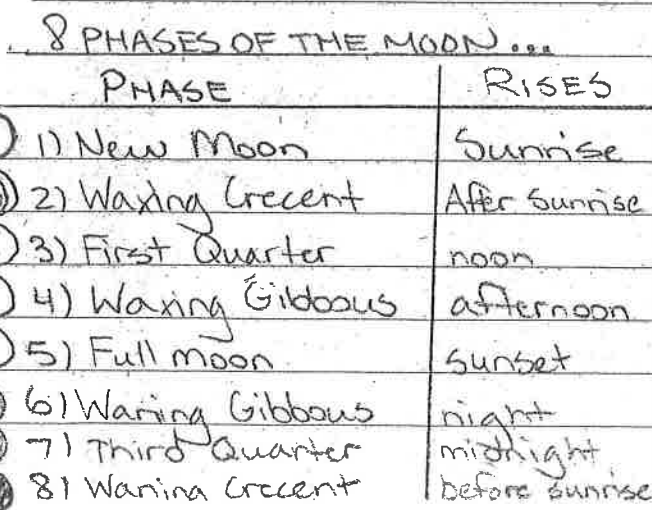 8 PHASES OF THE MOON...
PHASE RISES
1) New Moon Sunrise
2) Waxing Crecent After Sunrise
3) First Quarter noon
4) Waxing Gibbous afternoon
5) Full moon sunset
6) Waning Gibbous night
7) Third Quarter midnight
8) Waning Crecent before sunrise